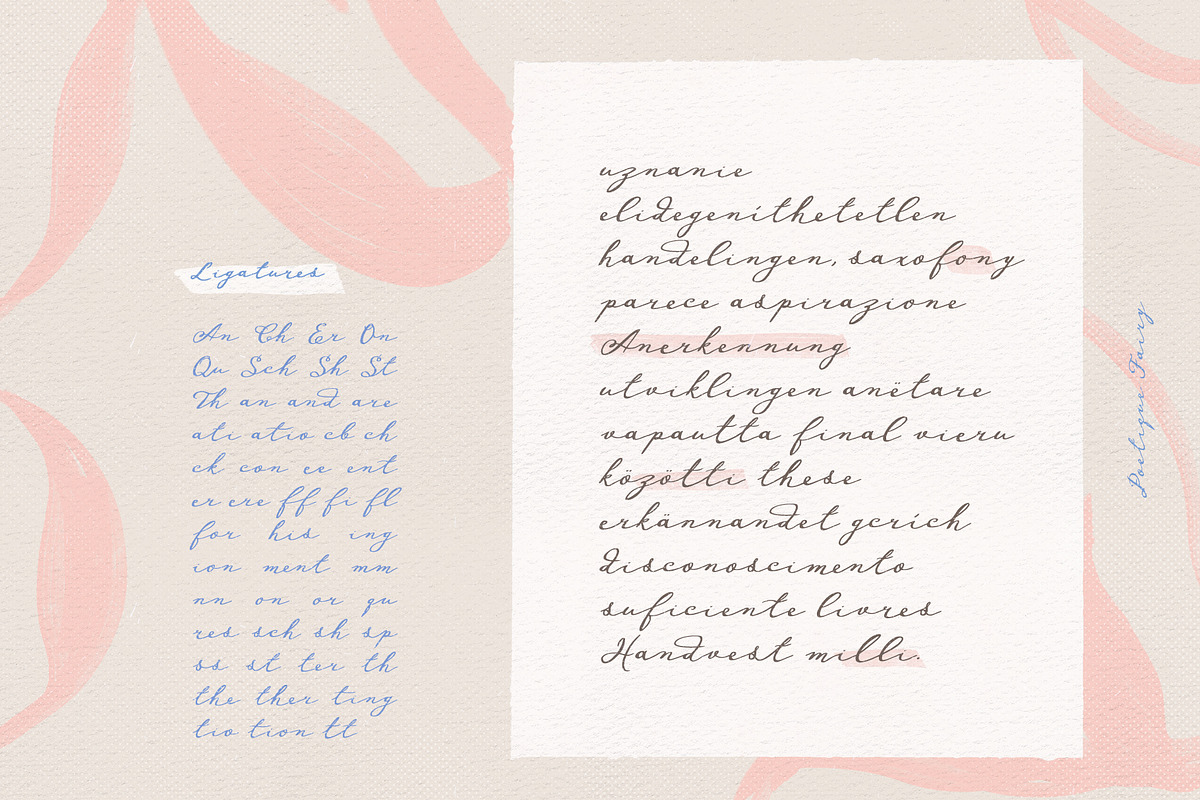 Ligatures
An Ch Er On
Qu Sch Sh St
Th an and are
ati atio cb ch
ck con ee ent
er ere ff fi fl
for his ing
ion ment mm
nn on or qu
res sch sh sp
ss st ter th
the ther ting
tio tion tt
uznanie
elidegeníthetetlen
handelingen, saxofony
parece aspirazione
Anerkennung
utviklingen anëtare
vapautta final vieru
közötti these
erkännandet gcrích
disconoscimento
suficiente livres
Handvest milli.
Poetique Fairy